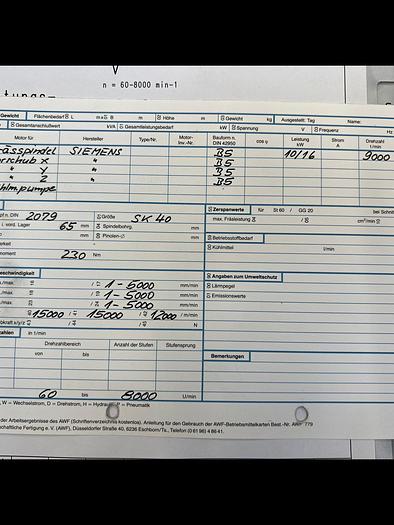 n = 60-8000 min-1
Gewicht Flächenbedarf L m x B m Höhe m Gewicht kg Ausgestellt: Tag Name:
Gesamtanschlußwert kVA Gesamtleistungsbedarf kW Spannung V Frequenz Hz
Motor für Hersteller Type/Nr. Motor-Inv.-Nr. Bauform n. DIN 42950 cos φ Leistung kW Strom A Drehzahl 1/min
ässpindel SIEMENS B5 10/16 9000
rschub X " B5
Y " B5
Z " B5
hlm.pumpe
n. DIN 2079 Größe SK 40
i. vord. Lager 65 mm Spindelbohrg. mm
mm Pinolen-Ø mm
moment 230 Nm
Zerspanwerte für St 60 / GG 20 bei Schnitt
max. Fräsleistung cm³/min
Betriebsstoffbedarf
Kühlmittel l/min
eschwindigkeit
/max. 1-5000 mm/min
/max. 1-5000 mm/min
/max. 1-5000 mm/min
15000 / 15000 / 12000 /m/min
bkraft x/y/z N
Angaben zum Umweltschutz
Lärmpegel
Emissionswerte
zahlen in 1/min
Drehzahlbereich Anzahl der Stufen Stufensprung
von bis
Bemerkungen
60 bis 8000 U/min
W = Wechselstrom, D = Drehstrom, H = Hydraulik, P = Pneumatik
der Arbeitsergebnisse des AWF (Schriftenverzeichnis kostenlos). Anleitung für den Gebrauch der AWF-Betriebsmittelkarten Best.-Nr. AWF 779
schaftliche Fertigung e. V. (AWF), Düsseldorfer Straße 40, 6236 Eschborn/Ts., Telefon (0 61 96) 4 86 41.